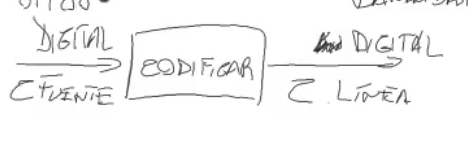 DIGITAL
C FUENTE
CODIFICAR
DIGITAL
C. LÍNEA